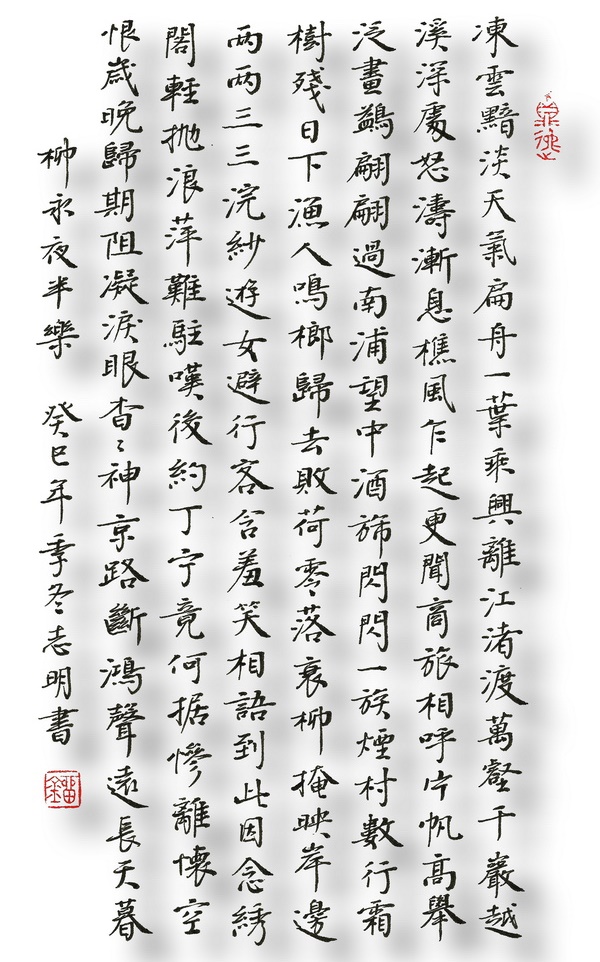 凍雲黯淡天氣扁舟一葉乘興離江渚渡萬壑千巖越
溪深處怒濤漸息樵風乍起更聞商旅相呼片帆高舉
泛畫鷁翩翩過南浦望中酒旆閃閃一族煙村數行霜
樹殘日下漁人鳴榔歸去敗荷零落衰柳掩映岸邊
兩兩三三浣紗遊女避行客含羞笑相語到此因念綉
閣輕抛浪萍難駐嘆後約丁宁竟何据慘離懷空
恨歲晚歸期阻凝淚眼杳〻神京路斷鴻聲遠長天暮
柳永夜半樂 癸巳年季冬志明書